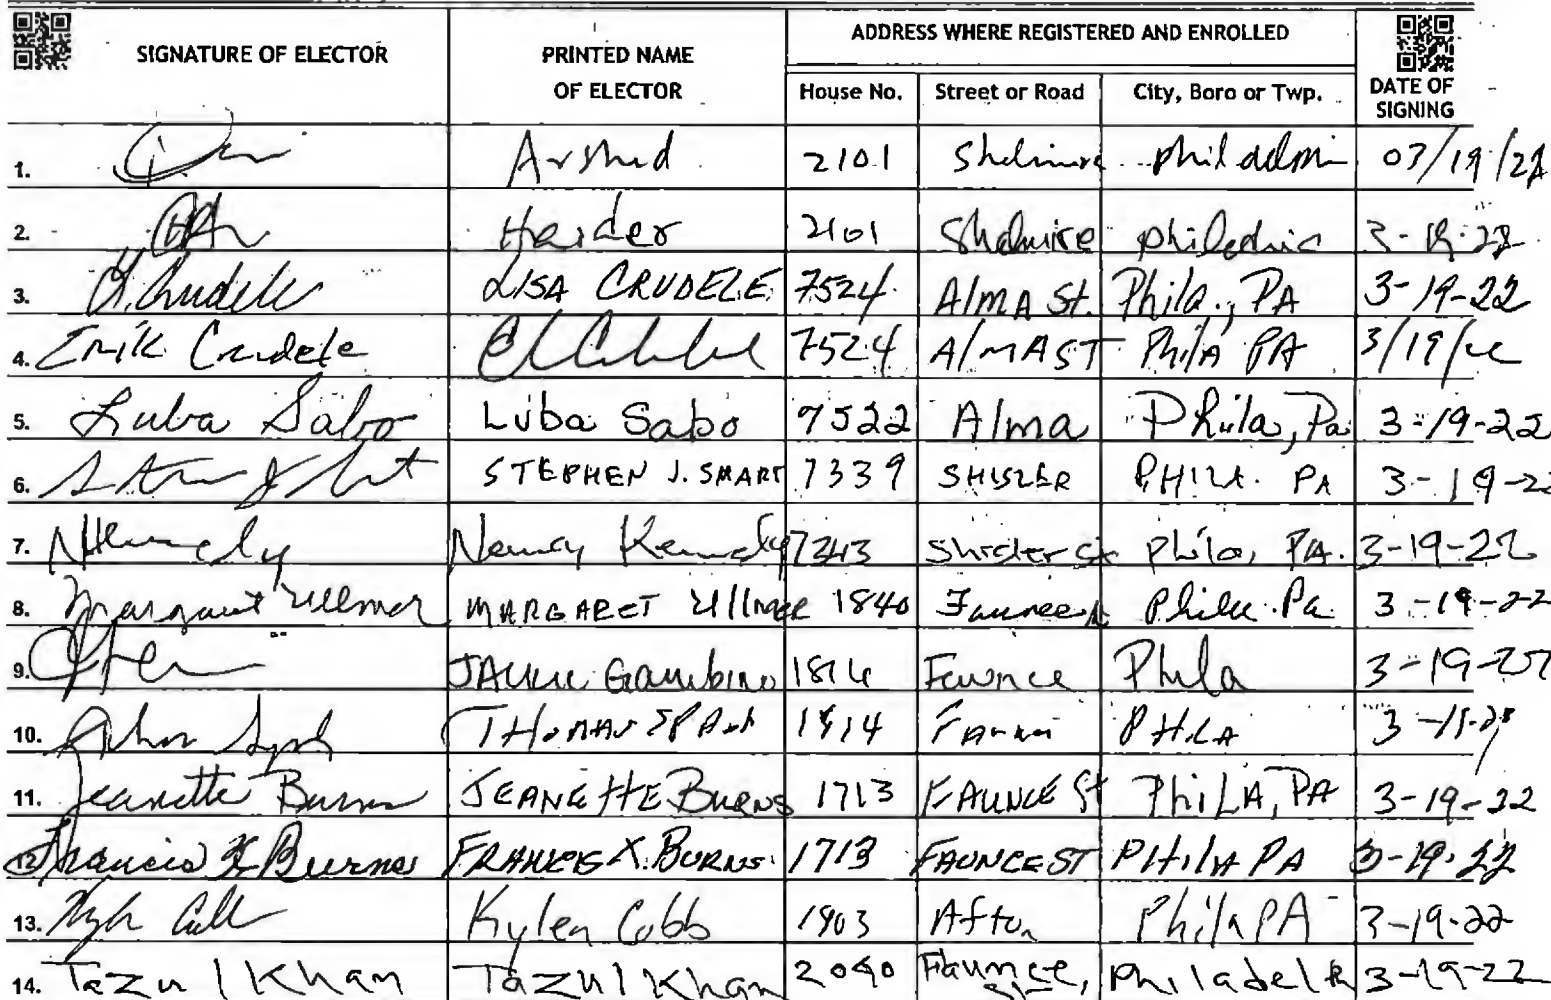 SIGNATURE OF ELECTOR PRINTED NAME OF ELECTOR ADDRESS WHERE REGISTERED AND ENROLLED DATE OF SIGNING
House No. Street or Road City, Boro or Twp.
1. Arshad 2101 03/19/22
2. Haider 2101 Shelmire 3-19-22
3. L. Crudele LISA CRUDELE 7524 AlMA St. Phila., PA 3-19-22
4. Erik Crudele 7524 AlMA ST PhilA PA 3/19/22
5. Luba Sabo Luba Sabo 7522 Alma Phila, Pa 3-19-22
6. STEPHEN J. SMART 7339 SHISLER PHILA. PA 3-19-22
7. Nancy Kennedy 7343 Phila, PA. 3-19-22
8. Margaret Ullmer MARGARET Ullmer 1840 Faunce Phila Pa 3-19-22
9. Gambino Faunce Phila 3-19-22
10. THOMAS 1814 PHILA
11. Jeanette Burns JEANETTE BURNS 1713 FAUNCE St PhiLA, PA 3-19-22
12. Francis X Burns FRANCIS X. BURNS 1713 FAUNCE ST PHilA PA 3-19-22
13. Cobb 1903 Afton Phila PA 3-19-22
14. Tazul Khan Tazul Khan 2040 Faunce 3-19-22